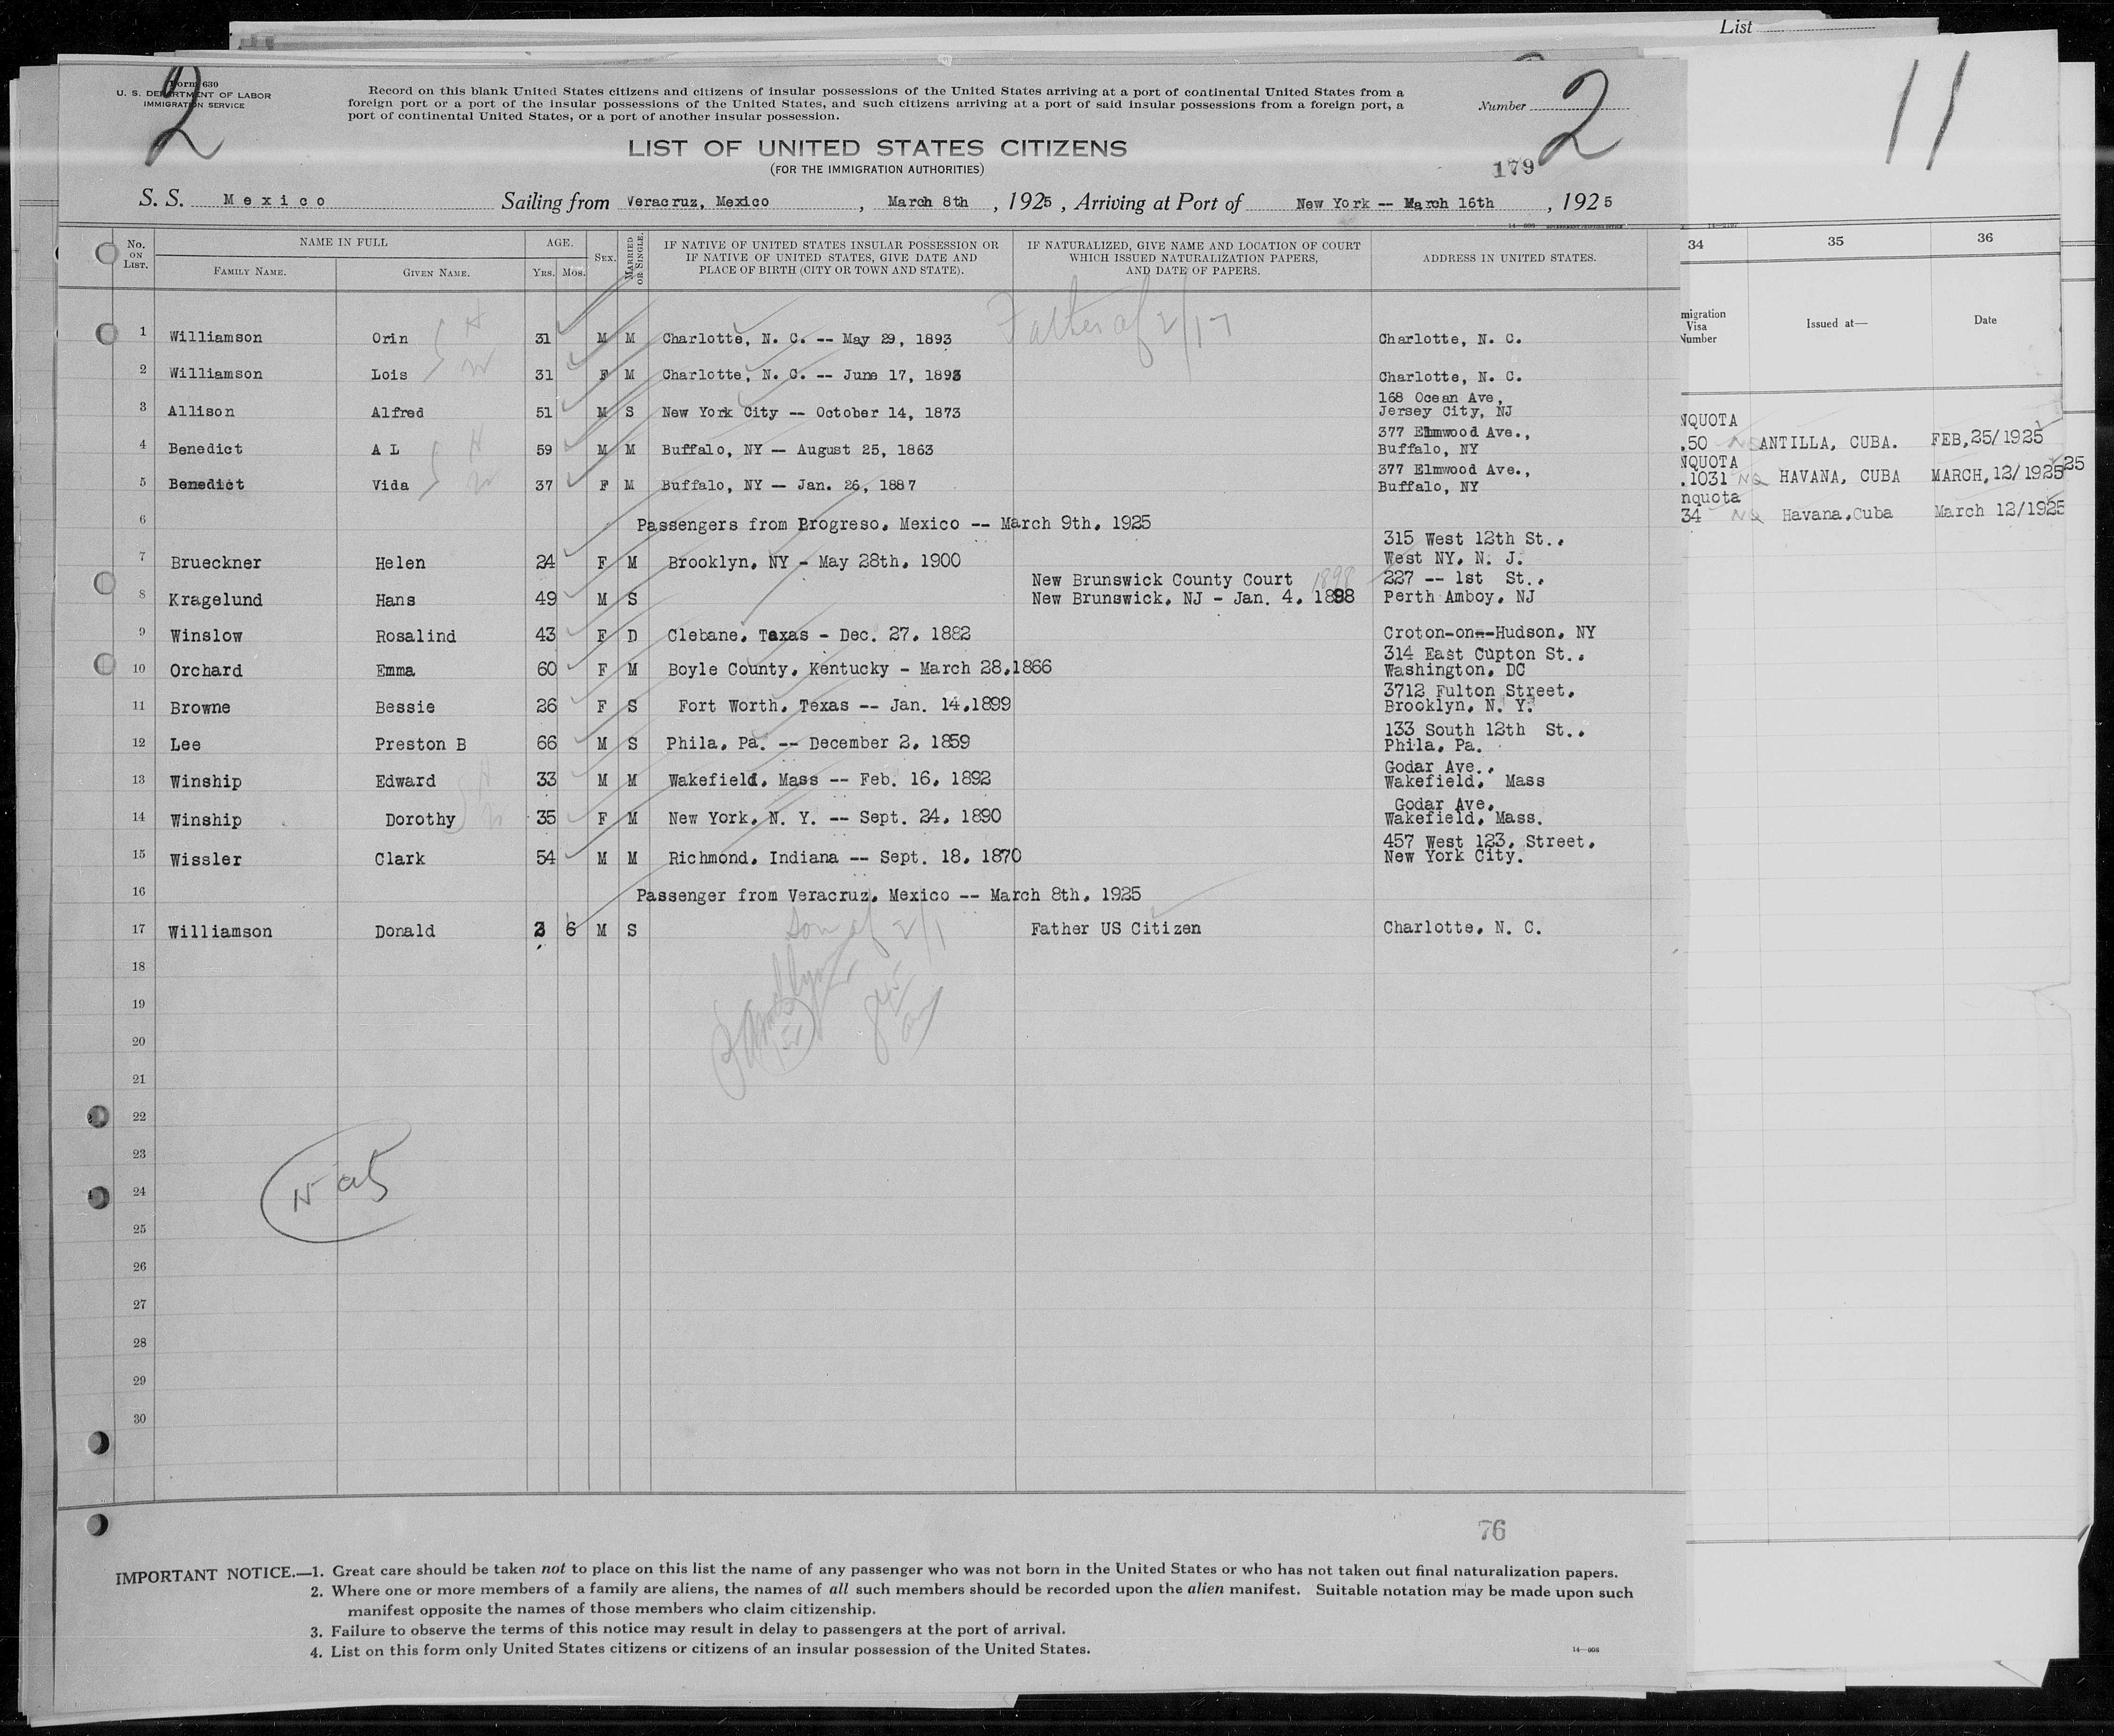 List
11
2
Form 630
U. S. DEPARTMENT OF LABOR
IMMIGRATION SERVICE
Record on this blank United States citizens and citizens of insular possessions of the United States arriving at a port of continental United States from a
foreign port or a port of the insular possessions of the United States, and such citizens arriving at a port of said insular possessions from a foreign port, a
port of continental United States, or a port of another insular possession.
Number 2
LIST OF UNITED STATES CITIZENS
(FOR THE IMMIGRATION AUTHORITIES)
179
S. S. Mexico Sailing from Veracruz, Mexico, March 8th, 1925, Arriving at Port of New York -- March 16th, 1925
No. ON LIST. NAME IN FULL FAMILY NAME. GIVEN NAME. AGE. Yrs. Mos. SEX. MARRIED OR SINGLE. IF NATIVE OF UNITED STATES INSULAR POSSESSION OR IF NATIVE OF UNITED STATES, GIVE DATE AND PLACE OF BIRTH (CITY OR TOWN AND STATE). IF NATURALIZED, GIVE NAME AND LOCATION OF COURT WHICH ISSUED NATURALIZATION PAPERS, AND DATE OF PAPERS. ADDRESS IN UNITED STATES.
Father of 2/17
1 Williamson Orin 31 M M Charlotte, N. C. -- May 29, 1893 Charlotte, N. C.
2 Williamson Lois 31 F M Charlotte, N. C. -- June 17, 1893 Charlotte, N. C.
3 Allison Alfred 51 M S New York City -- October 14, 1873 168 Ocean Ave, Jersey City, NJ
4 Benedict A L 59 M M Buffalo, NY -- August 25, 1863 377 Elmwood Ave., Buffalo, NY
5 Benedict Vida 37 F M Buffalo, NY -- Jan. 26, 1887 377 Elmwood Ave., Buffalo, NY
6 Passengers from Progreso, Mexico -- March 9th, 1925
7 Brueckner Helen 24 F M Brooklyn, NY - May 28th, 1900 315 West 12th St., West NY, N. J.
8 Kragelund Hans 49 M S New Brunswick County Court 1898 New Brunswick, NJ - Jan. 4, 1898 227 -- 1st St., Perth Amboy, NJ
9 Winslow Rosalind 43 F D Clebane, Texas - Dec. 27, 1882 Croton-on--Hudson, NY
10 Orchard Emma 60 F M Boyle County, Kentucky - March 28,1866 314 East Cupton St., Washington, DC
11 Browne Bessie 26 F S Fort Worth, Texas -- Jan. 14,1899 3712 Fulton Street, Brooklyn, N. Y.
12 Lee Preston B 66 M S Phila, Pa. -- December 2, 1859 133 South 12th St., Phila, Pa.
13 Winship Edward 33 M M Wakefield, Mass -- Feb. 16, 1892 Godar Ave., Wakefield, Mass
14 Winship Dorothy 35 F M New York, N. Y. -- Sept. 24, 1890 Godar Ave, Wakefield, Mass.
15 Wissler Clark 54 M M Richmond, Indiana -- Sept. 18, 1870 457 West 123, Street, New York City.
16 Passenger from Veracruz, Mexico -- March 8th, 1925
17 Williamson Donald 3 6 M S Father US Citizen Charlotte, N. C.
Son of 2/1
18
19
20
21
22
23
24
25
26
27
28
29
30
76
IMPORTANT NOTICE.—1. Great care should be taken not to place on this list the name of any passenger who was not born in the United States or who has not taken out final naturalization papers.
2. Where one or more members of a family are aliens, the names of all such members should be recorded upon the alien manifest. Suitable notation may be made upon such
manifest opposite the names of those members who claim citizenship.
3. Failure to observe the terms of this notice may result in delay to passengers at the port of arrival.
4. List on this form only United States citizens or citizens of an insular possession of the United States.
14—608
34 35 36
migration Visa Number Issued at— Date
NQUOTA
.50 ANTILLA, CUBA. FEB,25/1925
NQUOTA
.1031 NQ HAVANA, CUBA MARCH,12/1925
nquota
34 NQ Havana,Cuba March 12/1925
25